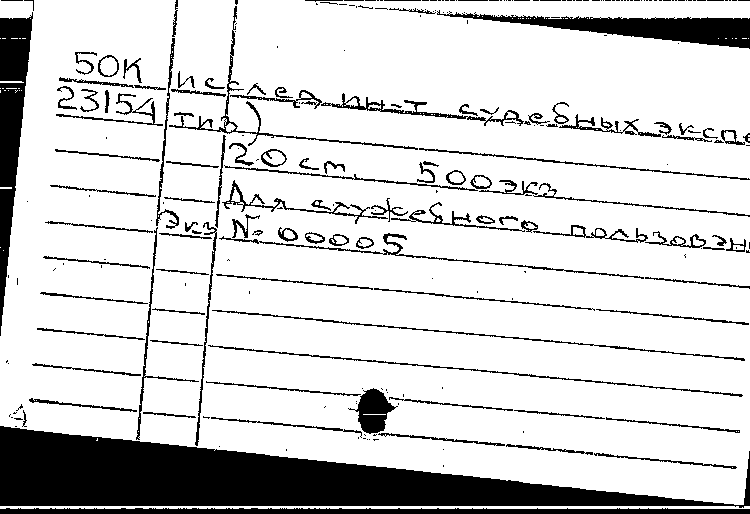 50К исслед ин-т судебных экспе
23154 тиз)
20 ст. 500 экз
Для служебного пользовани
Экз № 00005